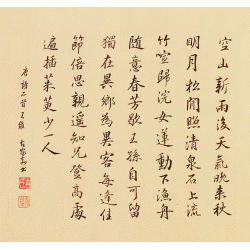 空山新雨後天氣晚來秋
明月松間照清泉石上流
竹喧歸浣女蓮動下漁舟
隨意春芳歇王孫自可留
獨在異鄉為異客每逢佳
節倍思親遥知兄登高處
遍插茱萸少一人
唐詩二首王維